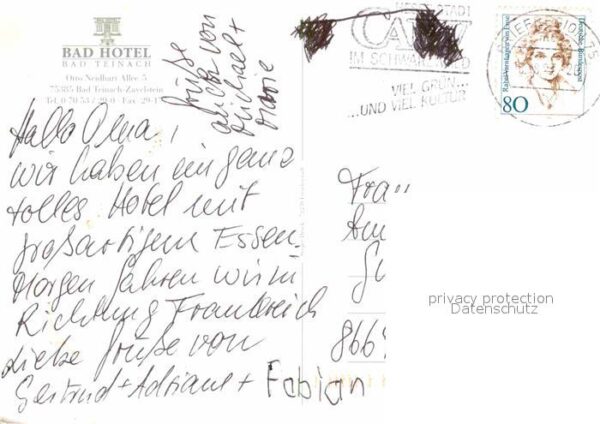 BAD HOTEL
BAD TEINACH
Otto Neidhart Allee 5
75385 Bad Teinach-Zavelstein
Tel. 0 70 53 / 29-0 · Fax 29-1
Grüße
auch von
Michael +
Marie
Hallo Oma,
wir haben ein ganz
tolles Hotel mit
großartigem Essen.
Morgen fahren wir in
Richtung Frankreich
Liebe Grüße von
Gertrud + Adriane + Fabian
STADT
CALW
IM SCHWARZWALD
VIEL GRÜN...
...UND VIEL KULTUR
BRIEFREGION 75
Rahel Varnhagen von Ense
Deutsche Bundespost
80
Fran
Am
8664
privacy protection
Datenschutz